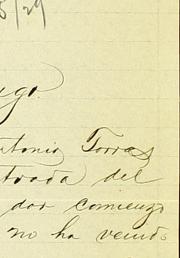 5/29
ago.
Antonio Torras
trada del
dar comienzo
no ha venido